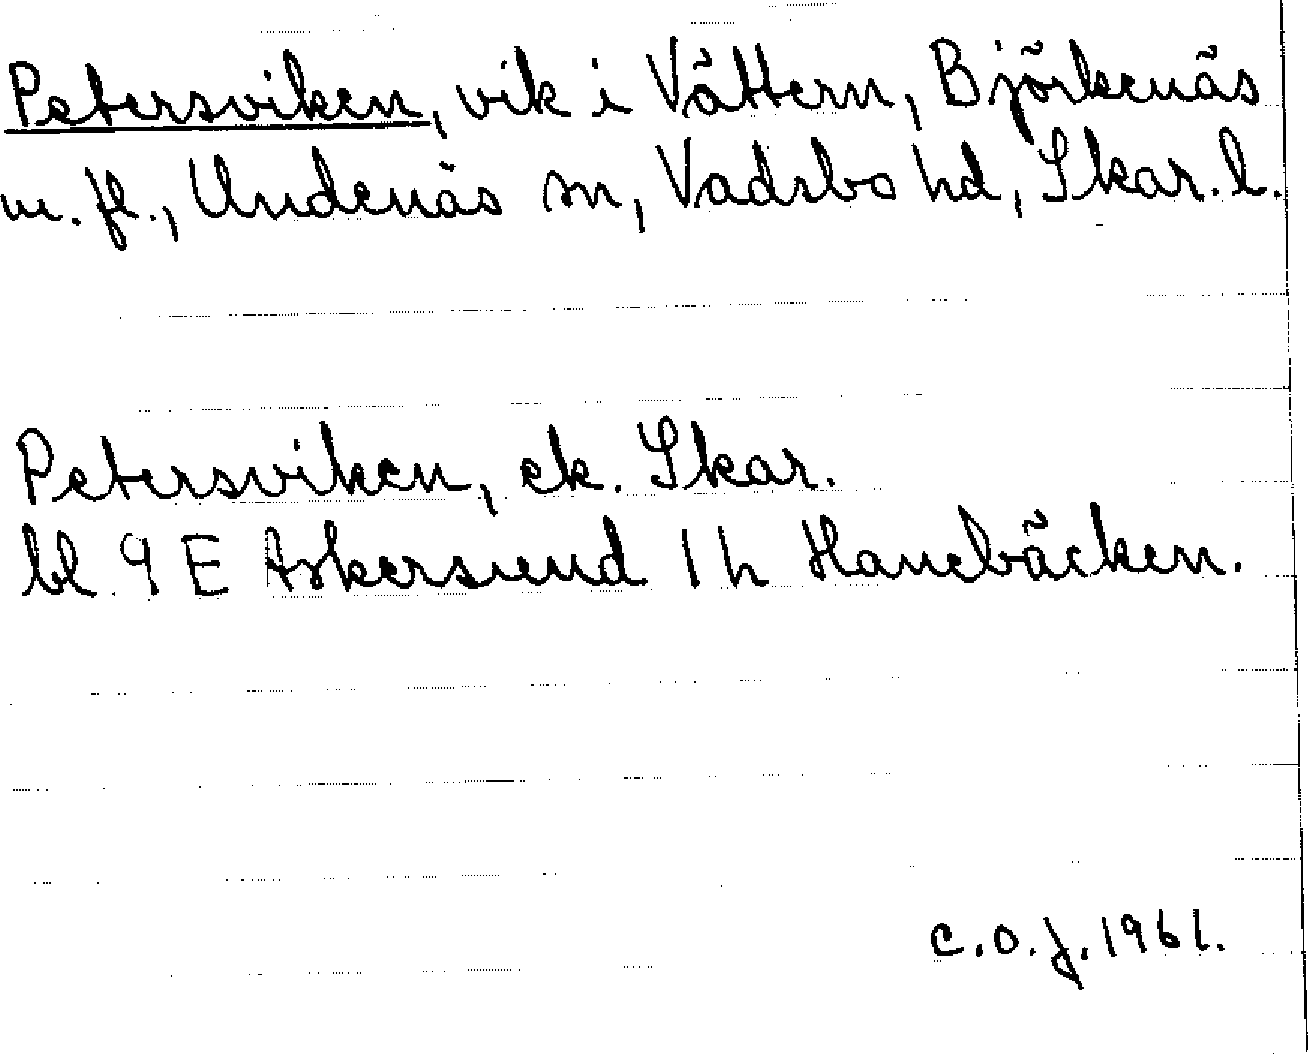 Petersviken, vik i Vättern, Björkenäs
m. fl., Undenäs sn, Vadsbo hd, Skar. l.
Petersviken, ek. Skar.
bl 9 E Askersund 1 h Hanebäcken.
C.O.J. 1961.